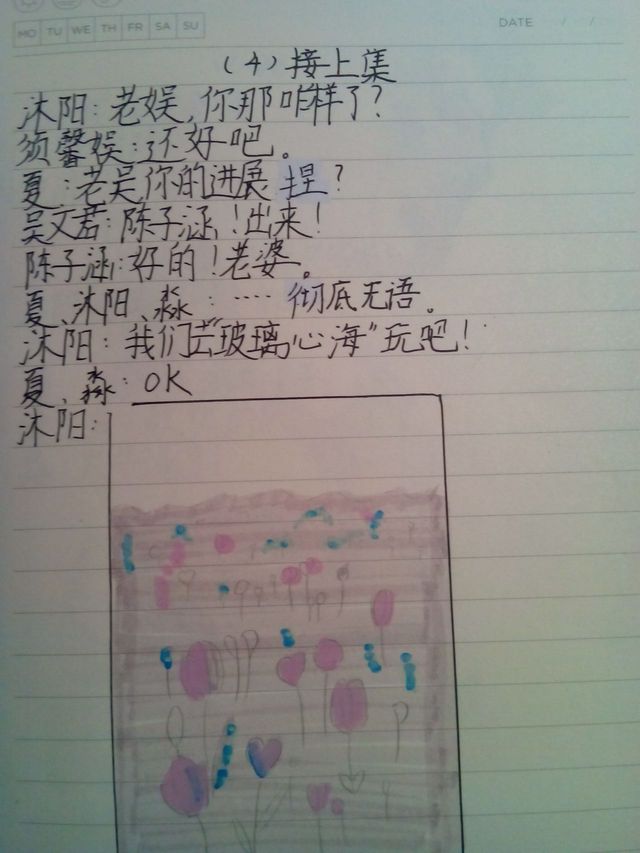 MO TU WE TH FR SA SU
DATE / /
（4）接上集
沐阳：老娱，你那咋样了？
须馨娱：还好吧。
夏：老吴你的进展捏？
吴文君：陈子涵！出来！
陈子涵：好的！老婆。
夏、沐阳、淼：···· 彻底无语。
沐阳：我们去“玻璃心海”玩吧！
夏、淼：OK
沐阳：